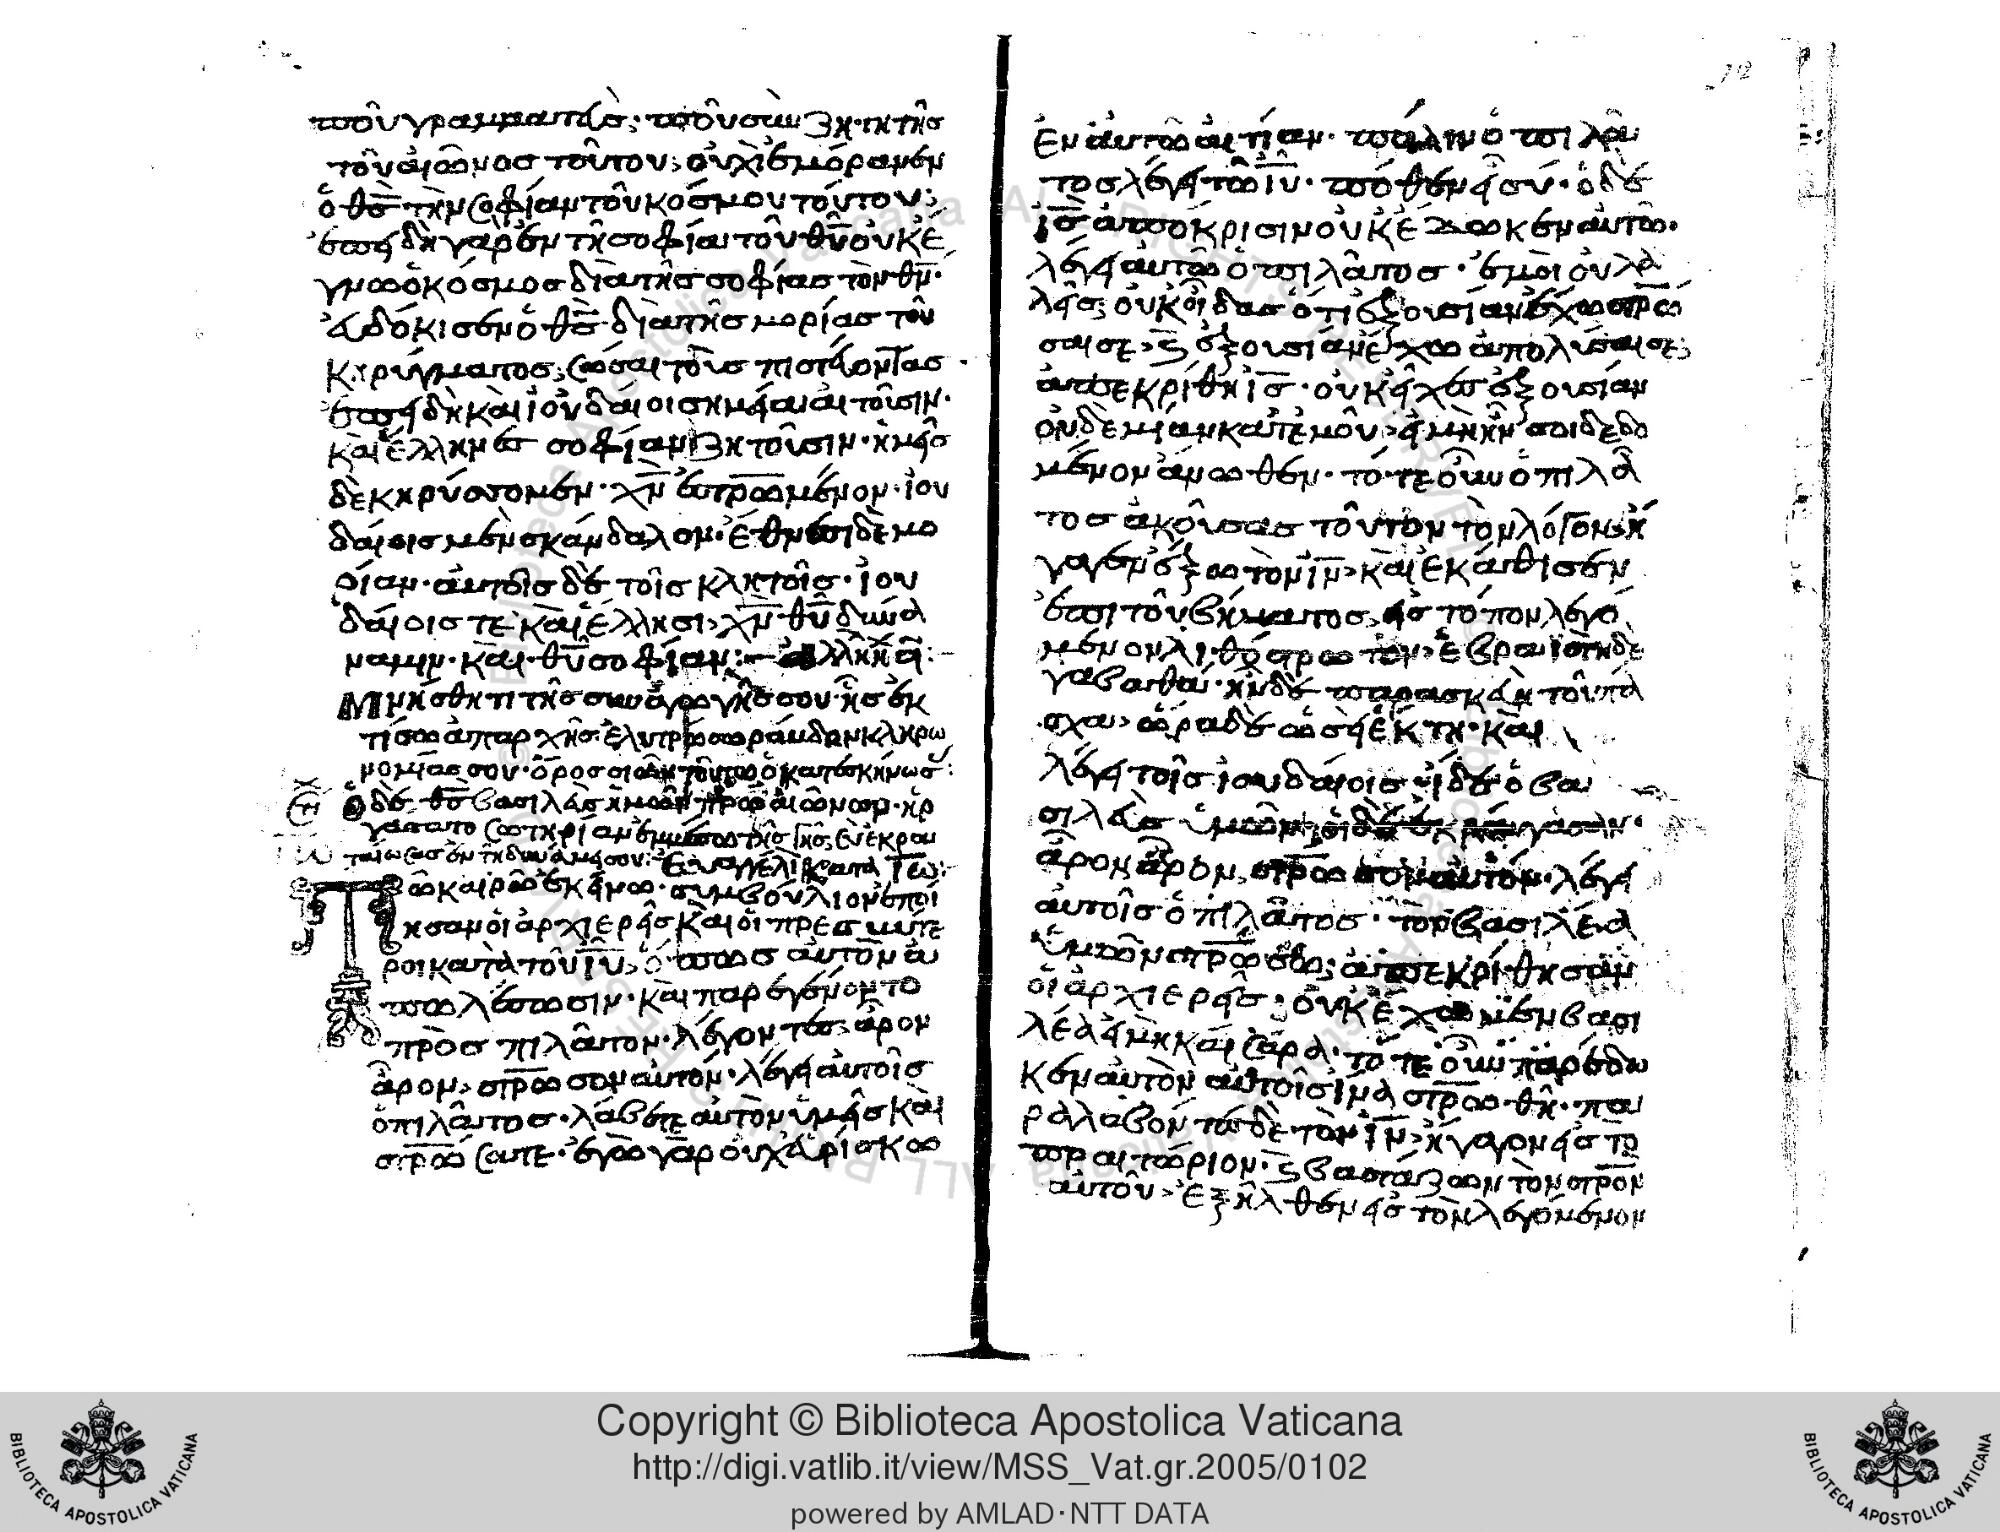 ποῦ γραμματεὺς· ποῦ συνζητητῆς
τοῦ αἰῶνος τούτου, οὐχὶ ἐμόρανεν
ὁ θς τὴν σοφίαν τοῦ κόσμου τούτου·
ἐπειδὴ γὰρ ἐν τῆ σοφία τοῦ θυ οὐκ ἔ
γνω ὁ κόσμος διὰ τῆς σοφίας τὸν θν·
εὐδόκισεν ὁ θς διὰ τῆς μορίας τοῦ
κηρύγματος, σῶσαι τοὺς πιστεύοντας
ἐπειδὴ καὶ ἰουδαίοι σημεῖα αἰτοῦσιν·
καὶ ἕλληνες σοφίαν ζητοῦσιν· ἡμεῖς
δὲ κηρύσσομεν· χν ἐστρωμένον· ἰου
δαίοις μὲν σκάνδαλον· ἔθνεσι δὲ μο
ρίαν· αὐτοῖς δὲ τοῖς κλητοῖς· ἰου
δαίοις τὲ καὶ ἕλλησι, χν θυ δύνα
ναμιν· καὶ θυ σοφίαν:
Μνήσθητι τῆς συναγωγῆς σου· ἧς ἐκ
τίσω ἀπαρχῆς ἐλυτρώσω ράβδον κληρω
νομίας σου· ὄρος σιὼν τοῦτο ὁ κατεσκήνωσ
ὁ δὲ θς βασιλεὺς ἡμῶν πρὸ αἰῶνων· ἠρ
γάσατο σωτηρίαν ἐν μέσω τῆς γῆς, σὺ ἐκρα
ταίωσας ἐν τῆ δυνάμει σου: Εὐαγγέλιον κατὰ Ιω:
Τῶ καιρῶ ἐκείνω· συμβούλιον ἐποί
ησαν οἱ ἀρχιερεῖς καὶ οἱ πρεσβύτε
ροι κατὰ τοῦ ιυ, ὅπως αὐτὸν ἀ
πωλέσωσιν· καὶ παρεγένοντο
πρὸς πιλᾶτον· λέγοντες, ἆρον
ἆρον, στρωσον αὐτόν· λέγει αὐτοῖς
ὁ πιλᾶτος· λάβετε αὐτὸν ὑμεῖς καὶ
στρώσατε· ἐγὼ γὰρ οὐχ εὑρίσκω
12
ἐν αὐτῶ αἰτίαν· πάλιν ὁ πιλᾶ
τος λέγει τῶ ιυ· πόθεν εἶ σύ· ὁ δὲ
ις ἀποκρισιν οὐκ ἔδωκεν αὐτῶ·
λέγει αὐτῶ ὁ πιλᾶτος· ἐμοὶ οὐ λα
λεῖς, οὐκ οἶδας ὅτι ἐξουσίαν ἔχω στρώ
σαι σε, ϗ ἐξουσίαν ἔχω ἀπολύσαι σε;
ἀπεκρίθη ις· οὐκ εἶχες ἐξουσίαν
οὐδὲ μίαν κατ' ἐμοῦ, εἰ μὴ ἦν σοι δεδο
μένον ἄνωθεν· τό τε οὖν ὁ πιλᾶ
τος ἀκοῦσας τοῦτον τὸν λόγον, ἤ
γαγεν ἔξω τὸν ιν, καὶ ἐκάθισεν
ἐπι τοῦ βήματος, εἰς τόπον λεγό
μενον λιθόστρωτον, ἑβραιστὶ δὲ
γαβαθά· ἦν δὲ παρασκευὴ τοῦ πά
σχα, ὥρα δὲ ὡσεὶ ἕκτη· καὶ
λέγει τοῖς ἰουδαίοις ἴδε ὁ βα
σιλεὺς ὑμῶν, οἱ δὲ ἐκραύγασαν·
ἆρον ἆρον, στρωσον αὐτόν· λέγει
αὐτοῖς ὁ πιλᾶτος· τὸν βασιλέα
ὑμῶν στρώσω, ἀπεκρίθησαν
οἱ ἀρχιερεῖς· οὐκ ἔχωμεν βασι
λέα εἰ μὴ καίσαρα· τό τε οὖν παρέδω
κεν αὐτὸν αὐτοῖς ἵνα στρωθῆ· πα
ραλαβόντες δὲ τὸν ιν, ἤγαγον εἰς τὸ
πραιτώριον· ϗ βαστάζων τὸν στρον
αὐτοῦ, ἐξῆλθεν εἰς τὸν λεγόμενον
Copyright © Biblioteca Apostolica Vaticana
http://digi.vatlib.it/view/MSS_Vat.gr.2005/0102
powered by AMLAD·NTT DATA
BIBLIOTECA APOSTOLICA VATICANA
BIBLIOTECA APOSTOLICA VATICANA